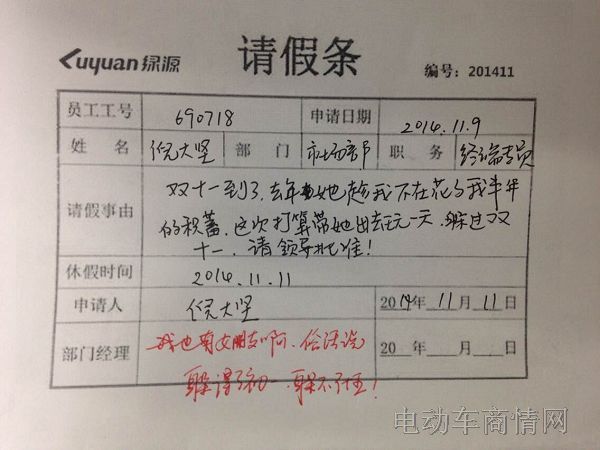 Luyuan 绿源 请假条 编号：201411
员工工号 690718 申请日期 2014.11.9
姓 名 倪大坚 部 门 市场部 职 务 经销专员
请假事由 双十一到了,去年她趁我不在花了我半年
的积蓄.这次打算带她出去玩一天.躲过双
十一.请领导批准！
休假时间 2014.11.11
申请人 倪大坚 2014年 11月 11日
部门经理 我也有女朋友啊.俗话说 20 年 月 日
躲得了初一.躲不了十五！
电动车商情网